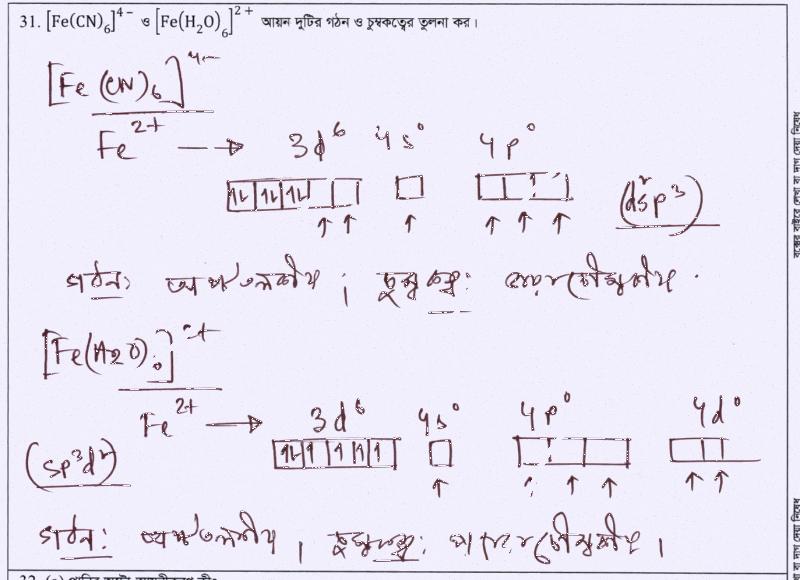 31. [Fe(CN)₆]⁴⁻ ও [Fe(H₂O)₆]²⁺ আয়ন দুটির গঠন ও চুম্বকত্বের তুলনা কর।
[Fe(CN)₆]⁴⁻
Fe²⁺ → 3d⁶ 4s⁰ 4p⁰
(d²sp³)
গঠন: অষ্টতলকীয় ; চুম্বকত্ব: ডায়াচৌম্বকীয়
[Fe(H₂O)₆]²⁺
Fe²⁺ → 3d⁶ 4s⁰ 4p⁰ 4d⁰
(sp³d²)
গঠন: অষ্টতলকীয় । চুম্বকত্ব: প্যারাচৌম্বকীয় ।